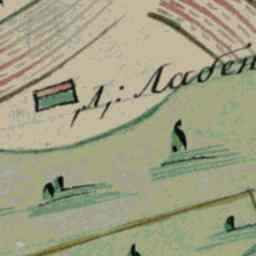 д: Лабен